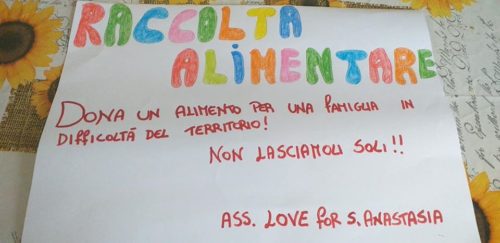 RACCOLTA
ALIMENTARE
DONA UN ALIMENTO PER UNA FAMIGLIA IN
DIFFICOLTÀ DEL TERRITORIO!
NON LASCIAMOLI SOLI!!
ASS. LOVE FOR S. ANASTASIA